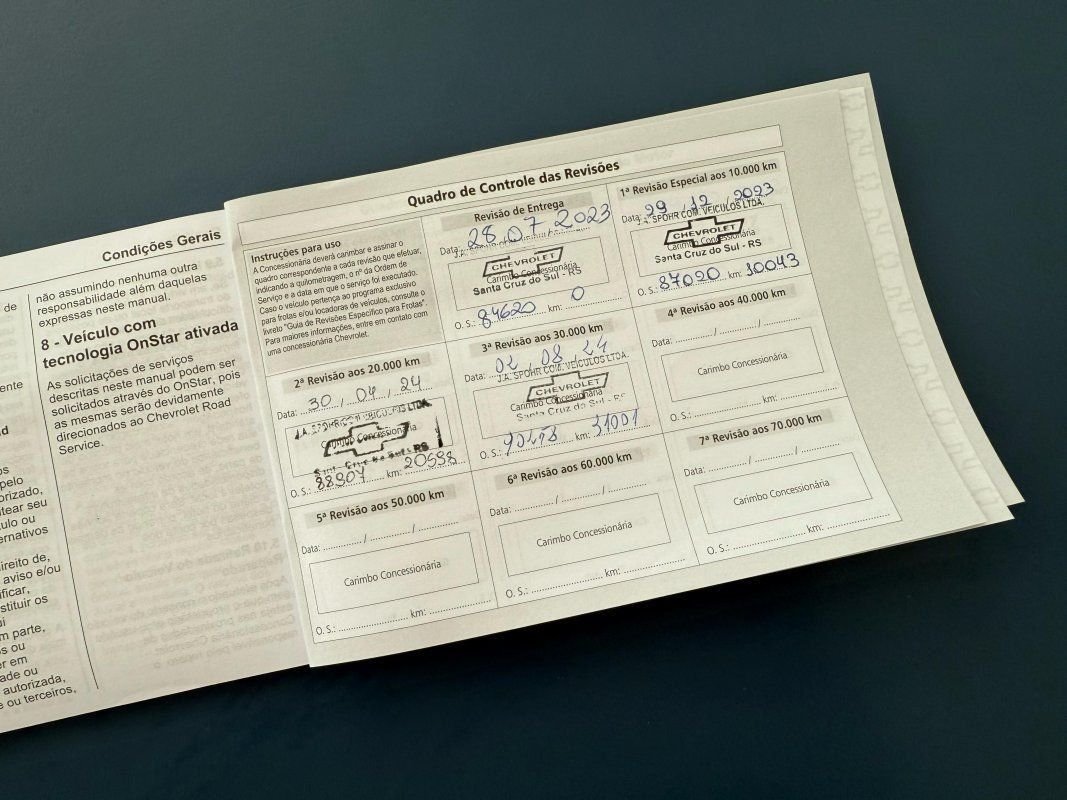 Condições Gerais
de
ente
d
s
pelo
orizado,
tear seu
ulo ou
ernativos
ireito de,
aviso e/ou
ficar,
stituir os
ui
m parte,
s ou
er em
ade ou
autorizada,
e ou terceiros,
não assumindo nenhuma outra
responsabilidade além daquelas
expressas neste manual.
8 - Veículo com
tecnologia OnStar ativada
As solicitações de serviços
descritas neste manual podem ser
solicitados através do OnStar, pois
as mesmas serão devidamente
direcionados ao Chevrolet Road
Service.
Quadro de Controle das Revisões
Instruções para uso
A Concessionária deverá carimbar e assinar o
quadro correspondente a cada revisão que efetuar,
indicando a quilometragem, o nº da Ordem de
Serviço e a data em que o serviço foi executado.
Caso o veículo pertença ao programa exclusivo
para frotas e/ou locadoras de veículos, consulte o
livreto "Guia de Revisões Específico para Frotas".
Para maiores informações, entre em contato com
uma concessionária Chevrolet.
Revisão de Entrega
Data: 28 07 2023
CHEVROLET
Carimbo Concessionária
Santa Cruz do Sul - RS
O. S.: 84620 km: 0
1ª Revisão Especial aos 10.000 km
Data: 29 12 2023
J.A. SPOHR COM. VEÍCULOS LTDA.
CHEVROLET
Carimbo Concessionária
Santa Cruz do Sul - RS
O. S.: 87020 km: 10043
2ª Revisão aos 20.000 km
Data: 30 / 04 / 24
Carimbo Concessionária
O. S.: 88907 km: 20598
3ª Revisão aos 30.000 km
Data: 02 / 08 / 24
J.A. SPOHR COM. VEÍCULOS LTDA.
CHEVROLET
Carimbo Concessionária
Santa Cruz do Sul - RS
O. S.: km: 31001
4ª Revisão aos 40.000 km
Data: / /
Carimbo Concessionária
O. S.: km:
5ª Revisão aos 50.000 km
Data: / /
Carimbo Concessionária
O. S.: km:
6ª Revisão aos 60.000 km
Data: / /
Carimbo Concessionária
O. S.: km:
7ª Revisão aos 70.000 km
Data: / /
Carimbo Concessionária
O. S.: km: